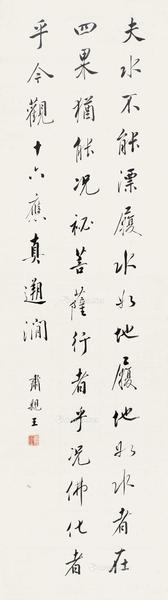 夫水不能漂履水如地履地如水者在
四果犹能况祕菩萨行者乎况佛化者
乎今觀十六應真遡澗
肅親王